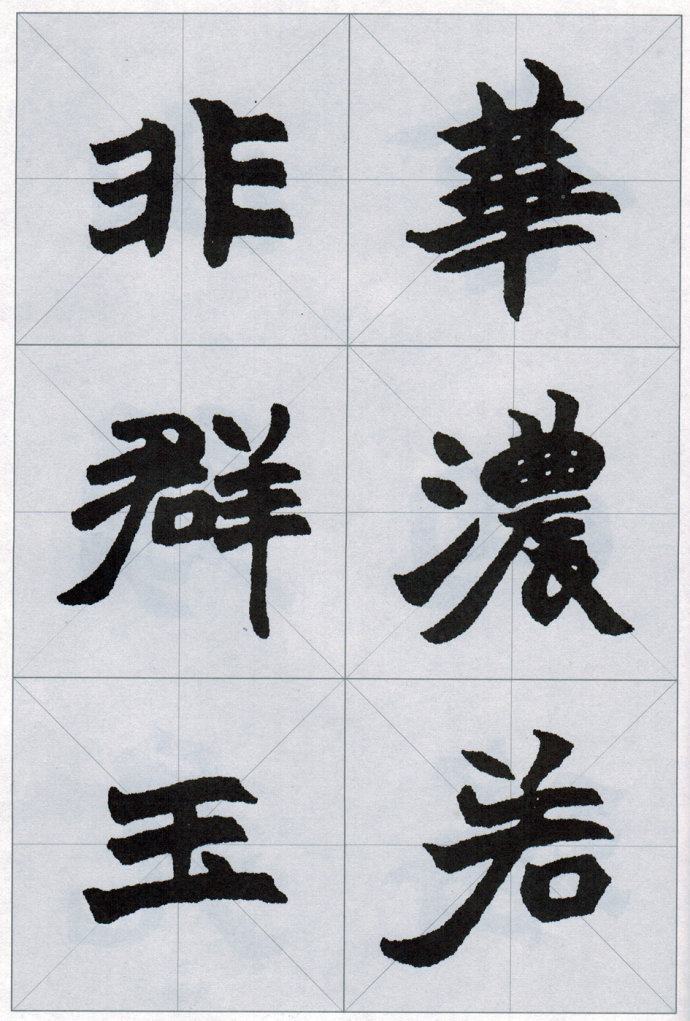 華濃若
非群玉